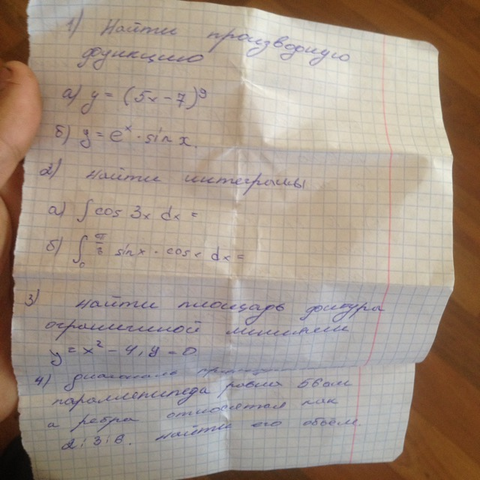 1) Найти производную
функцию
а) y = (5x-7)⁹
б) y = eˣ · sin x.
2) найти интегралы
а) ∫ cos 3x dx =
б) ∫₀^(π/3) sin x · cos x dx =
3) найти площадь фигура
ограниченой линиями
y = x² - 4, y = 0
4) диагональ
параллепипеда равна
а ребра относятся как
2:3:6. Найти его объём.